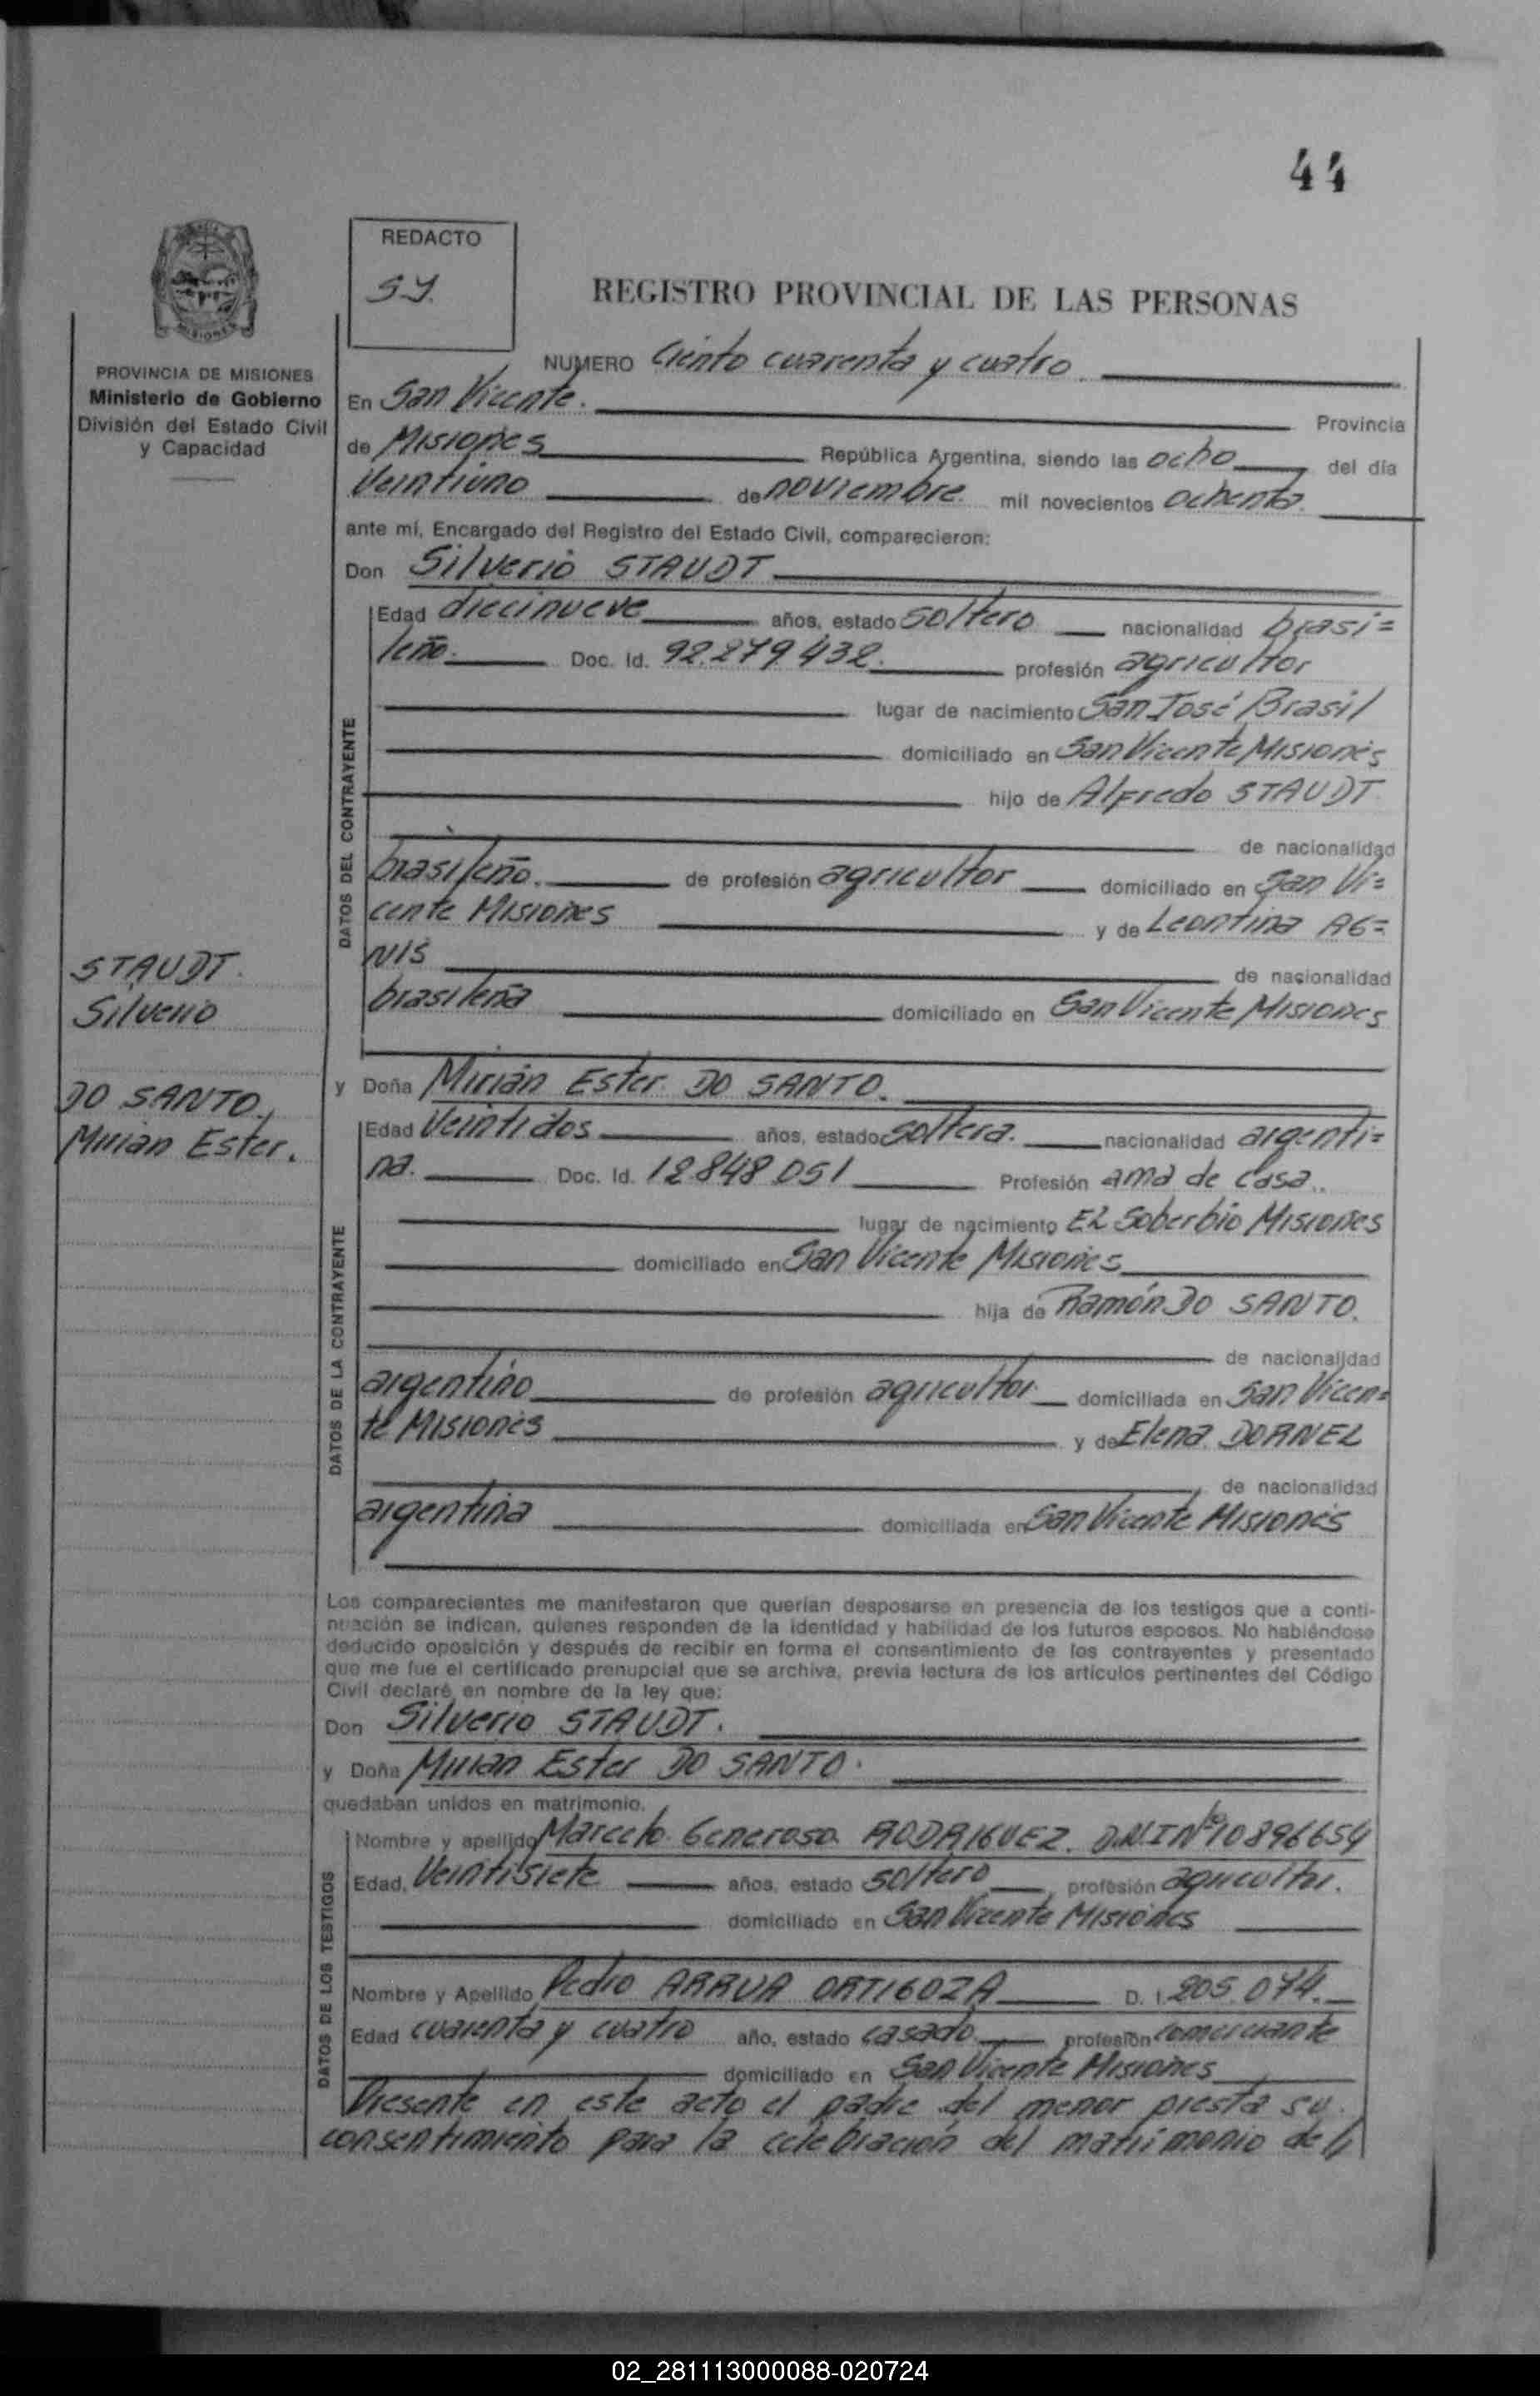 44
REDACTO
S.Y.
REGISTRO PROVINCIAL DE LAS PERSONAS
PROVINCIA DE MISIONES
Ministerio de Gobierno
División del Estado Civil
y Capacidad
NUMERO Ciento cuarenta y cuatro.
En San Vicente. Provincia
de Misiones República Argentina, siendo las ocho del día
veintiuno de noviembre. mil novecientos ochenta.
ante mí, Encargado del Registro del Estado Civil, comparecieron:
Don Silverio STAUDT
DATOS DEL CONTRAYENTE
Edad diecinueve años, estado soltero nacionalidad brasi=
leño. Doc. Id. 92.279.432. profesión agricultor
lugar de nacimiento San José Brasil
domiciliado en San Vicente Misiones
hijo de Alfredo STAUDT.
de nacionalidad
brasileño. de profesión agricultor domiciliado en San Vi=
cente Misiones y de Leontina AG=
NIS de nacionalidad
brasileña domiciliado en San Vicente Misiones
STAUDT.
Silverio
DO SANTO.
Mirian Ester.
y Doña Mirián Ester DO SANTO.
DATOS DE LA CONTRAYENTE
Edad Veintidos años, estado soltera. nacionalidad argenti=
na. Doc. Id. 12.848.051 Profesión ama de casa.
lugar de nacimiento El Soberbio Misiones
domiciliado en San Vicente Misiones
hija de Ramón DO SANTO.
de nacionalidad
argentino de profesión agricultor domiciliada en San Vicen=
te Misiones y de Elena DORNEL
de nacionalidad
argentina domiciliada en San Vicente Misiones
Los comparecientes me manifestaron que querían desposarse en presencia de los testigos que a conti-
nuación se indican, quienes responden de la identidad y habilidad de los futuros esposos. No habiéndose
deducido oposición y después de recibir en forma el consentimiento de los contrayentes y presentado
que me fue el certificado prenupcial que se archiva, previa lectura de los artículos pertinentes del Código
Civil declaré en nombre de la ley que:
Don Silverio STAUDT.
y Doña Mirian Ester DO SANTO.
quedaban unidos en matrimonio.
DATOS DE LOS TESTIGOS
Nombre y apellido Marcelo Generoso RODRIGUEZ. D.N.I Nº 10896654
Edad, Veintisiete años, estado soltero profesión agricultor.
domiciliado en San Vicente Misiones
Nombre y Apellido Pedro ARRUA ORTIGOZA D. I. 205.074.
Edad cuarenta y cuatro año, estado casado profesión comerciante
domiciliado en San Vicente Misiones
Presente en este acto el padre del menor presta su
consentimiento para la celebración del matrimonio de
02_281113000088-020724